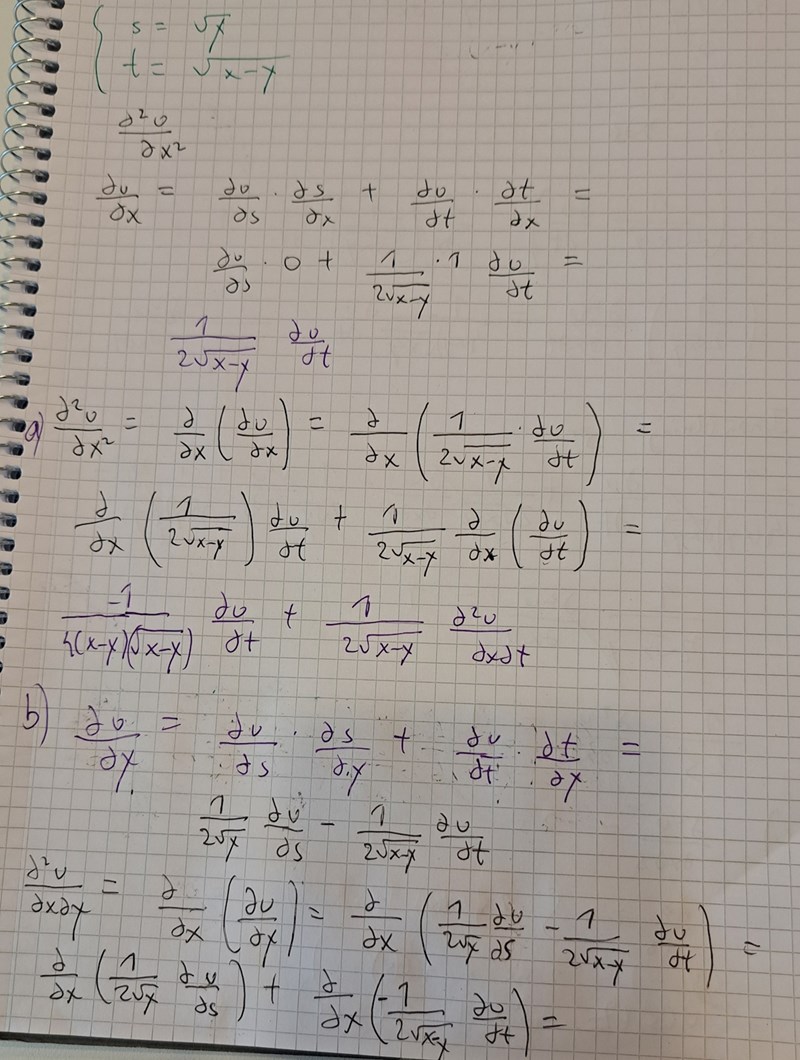 { s = √y
t = √(x-y)
∂²u/∂x²
∂u/∂x = ∂u/∂s · ∂s/∂x + ∂u/∂t · ∂t/∂x =
∂u/∂s · 0 + 1/(2√(x-y)) · 1 ∂u/∂t =
1/(2√(x-y)) ∂u/∂t
a) ∂²u/∂x² = ∂/∂x (∂u/∂x) = ∂/∂x (1/(2√(x-y)) · ∂u/∂t) =
∂/∂x (1/(2√(x-y))) ∂u/∂t + 1/(2√(x-y)) ∂/∂x (∂u/∂t) =
-1/(4(x-y)(√(x-y))) ∂u/∂t + 1/(2√(x-y)) ∂²u/∂x∂t
b) ∂u/∂y = ∂u/∂s · ∂s/∂y + ∂u/∂t · ∂t/∂y =
1/(2√y) ∂u/∂s - 1/(2√(x-y)) ∂u/∂t
∂²u/∂x∂y = ∂/∂x (∂u/∂y) = ∂/∂x (1/(2√y) ∂u/∂s - 1/(2√(x-y)) ∂u/∂t) =
∂/∂x (1/(2√y) ∂u/∂s) + ∂/∂x (-1/(2√(x-y)) ∂u/∂t) =